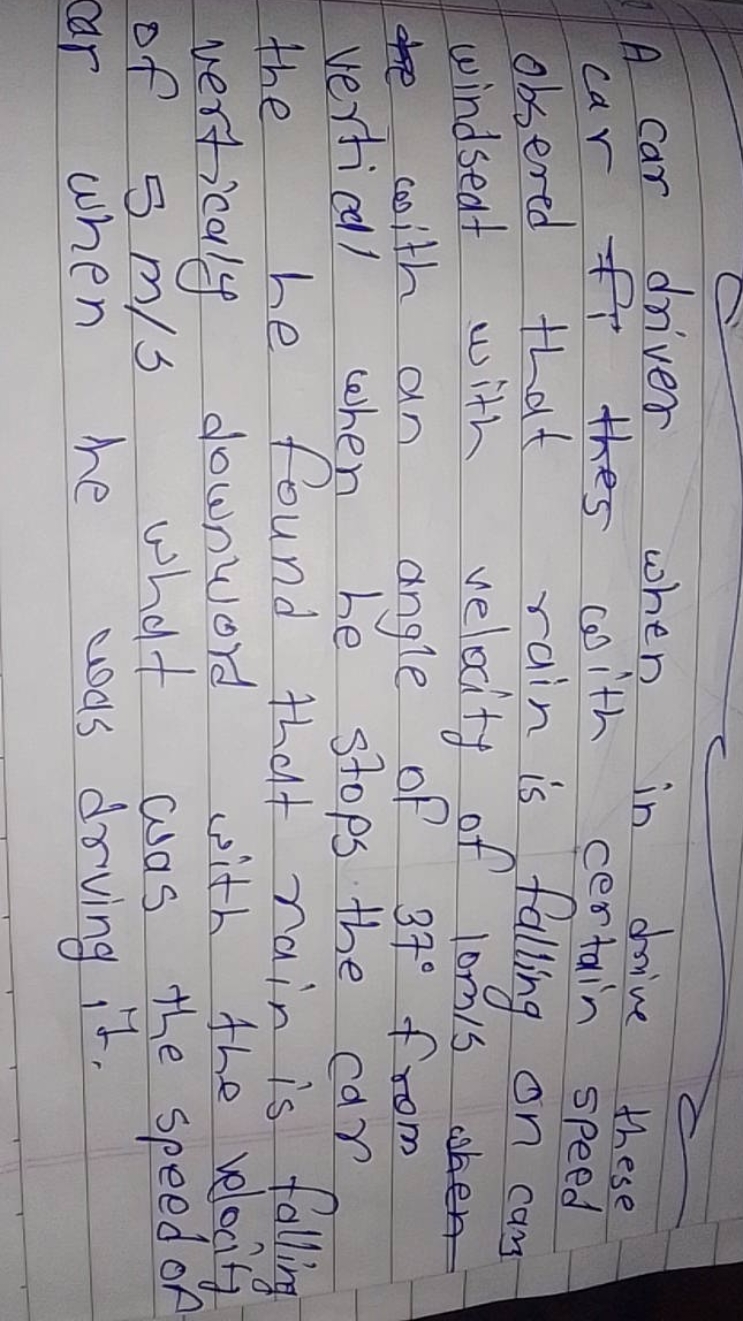 A car driver when in drive these
car fr thes with certain speed
obsered that rain is falling on cars
windseat with velocity of 10m/s when
the with an angle of 37° from
vertical when he stops the car
the he found that rain is falling
vertically downword with the velocity
of 5 m/s what was the speed of
car when he was drving it.